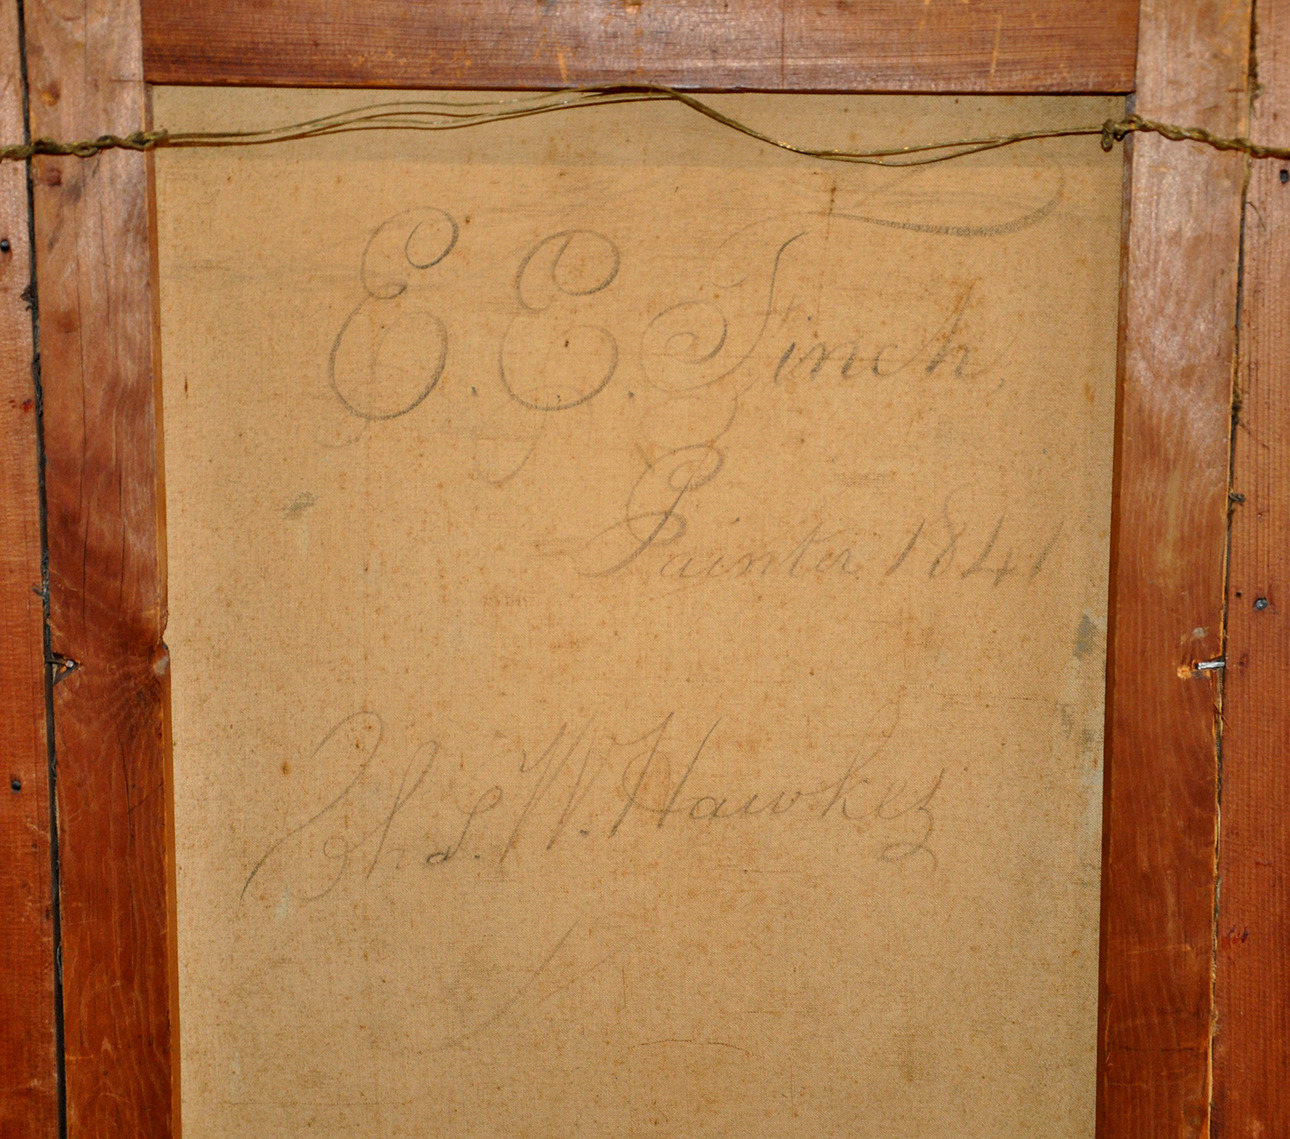 E. E. Finch,
Painter 1841
Chs. W. Hawkes